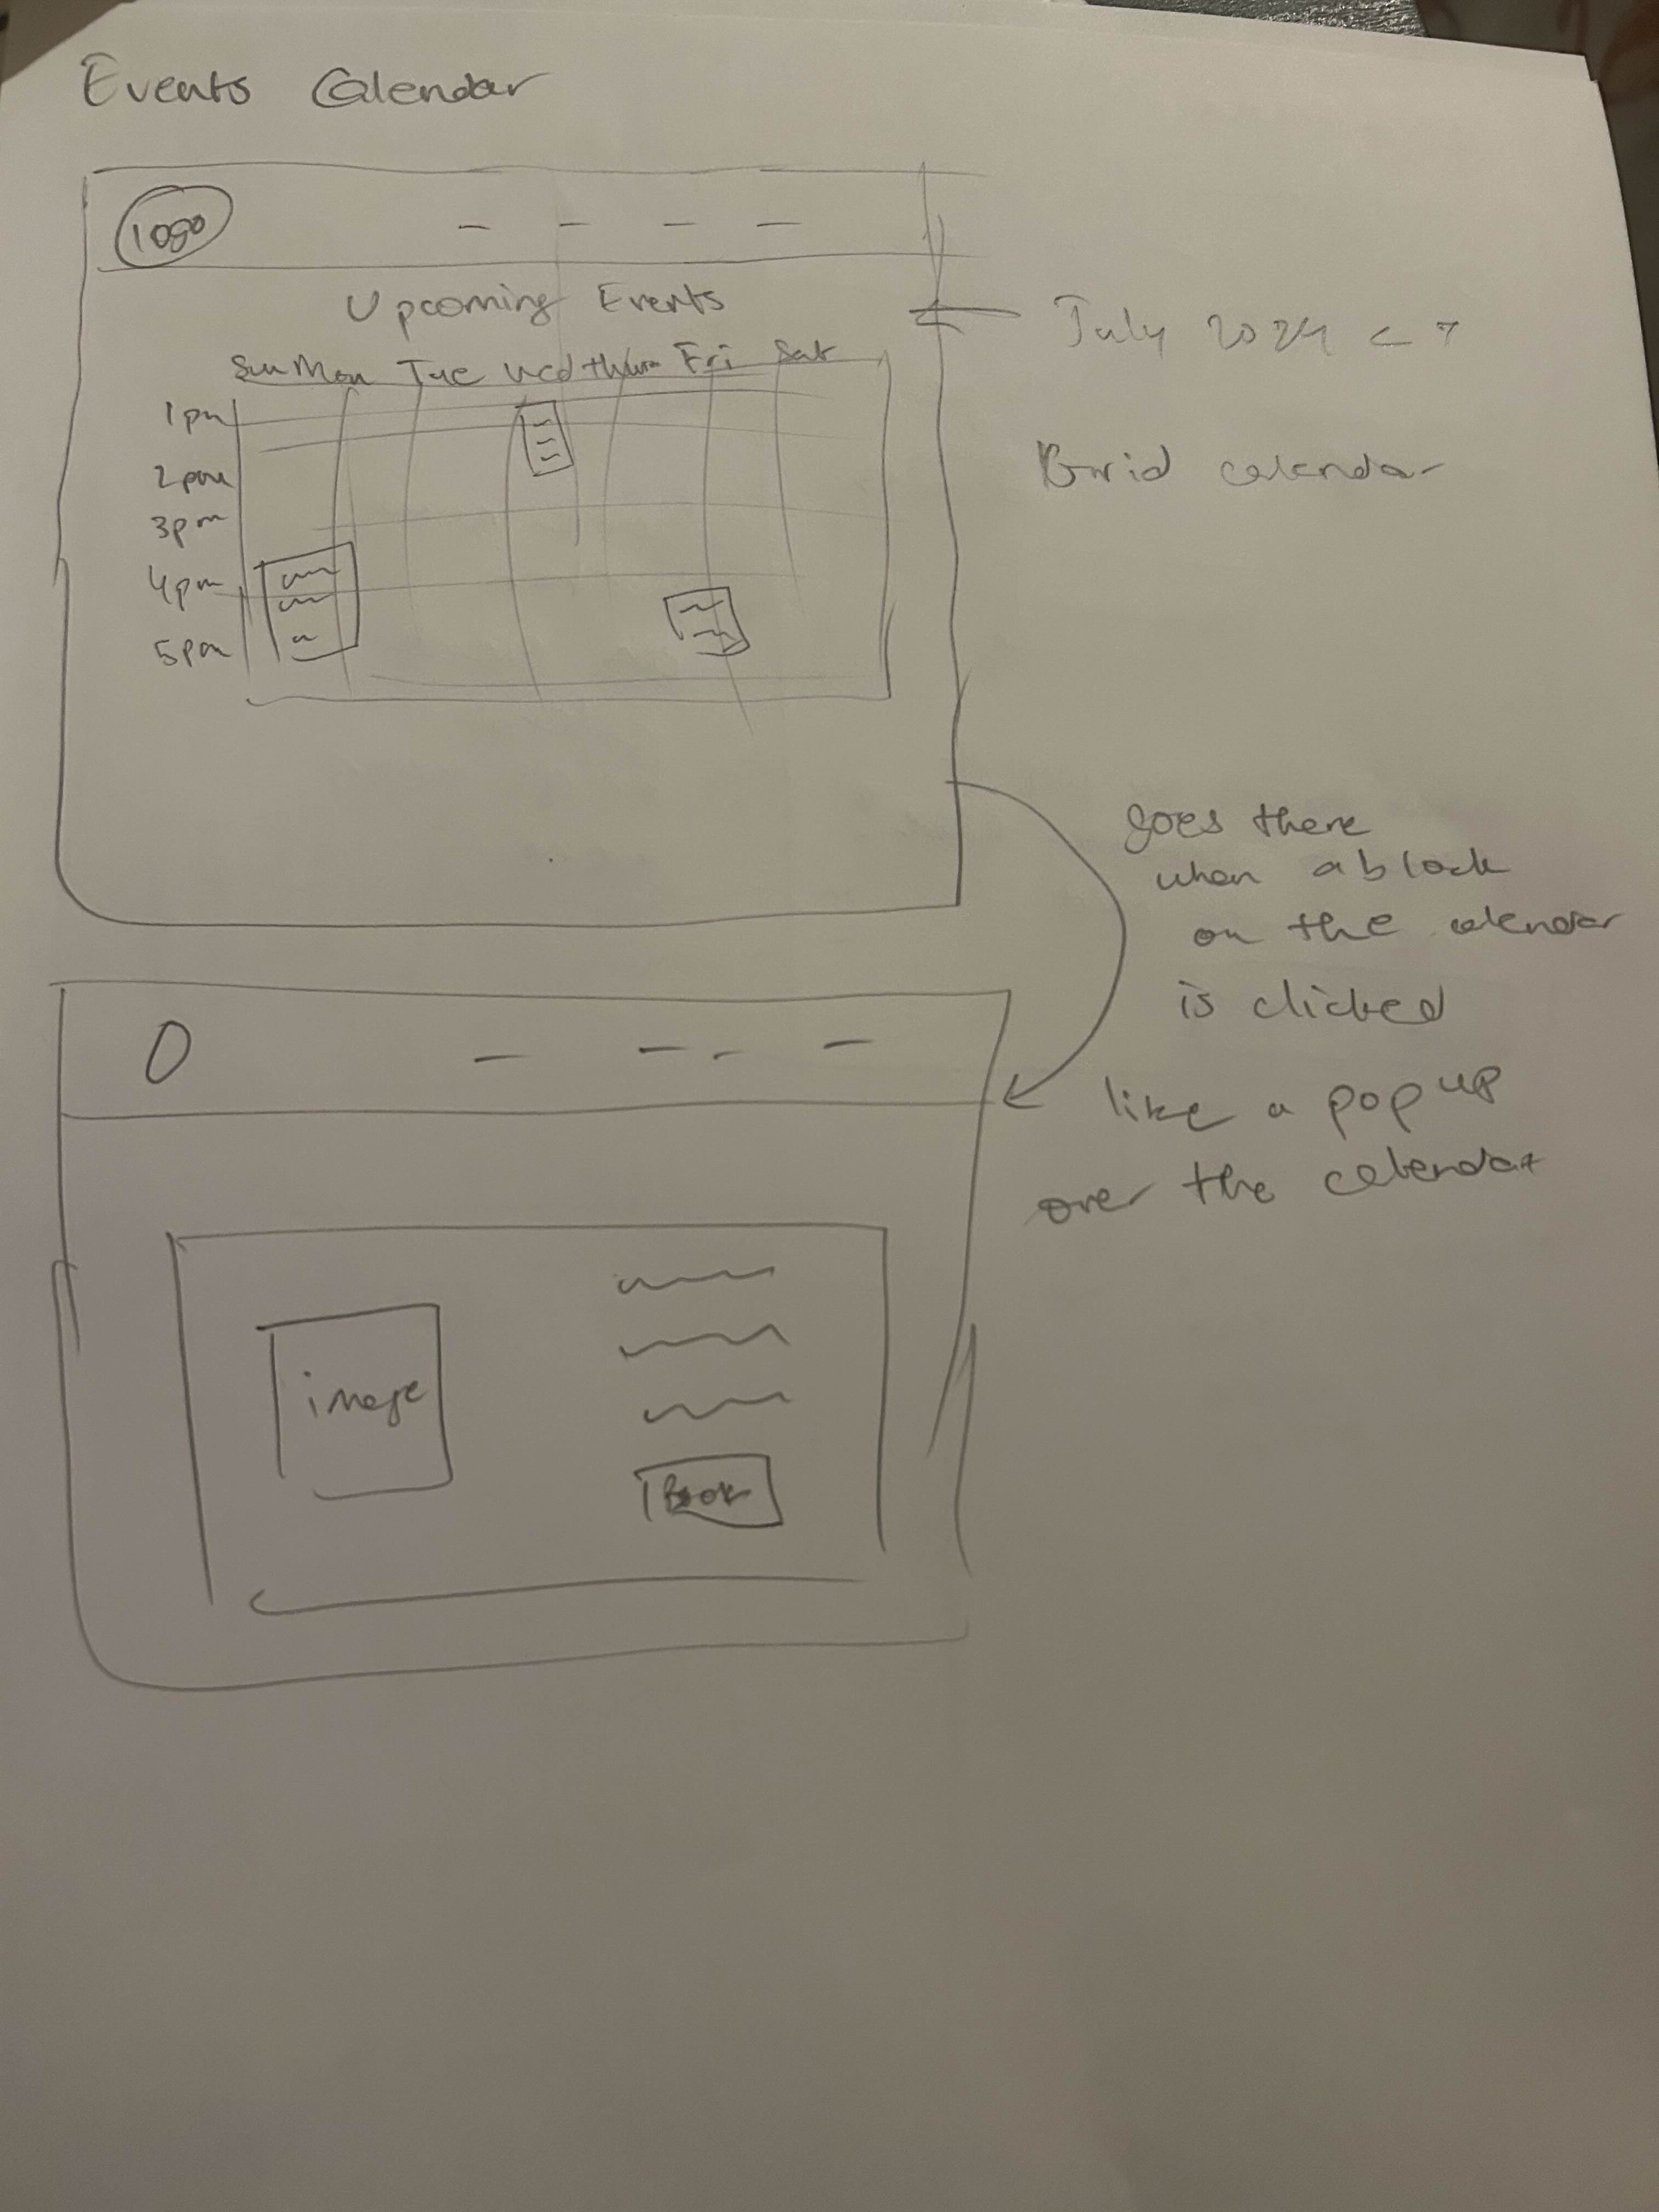 Events Calendar
logo
Upcoming Events
July 2024 < >
Sun Mon Tue Wed thur Fri Sat
1pm
2pm
3pm
4pm
5pm
Grid calendar
goes there
when a block
on the calendar
is clicked
like a pop up
over the calendar
image
Book